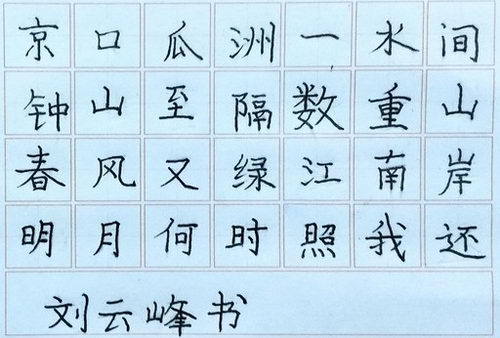 京口瓜洲一水间
钟山至隔数重山
春风又绿江南岸
明月何时照我还
刘云峰书